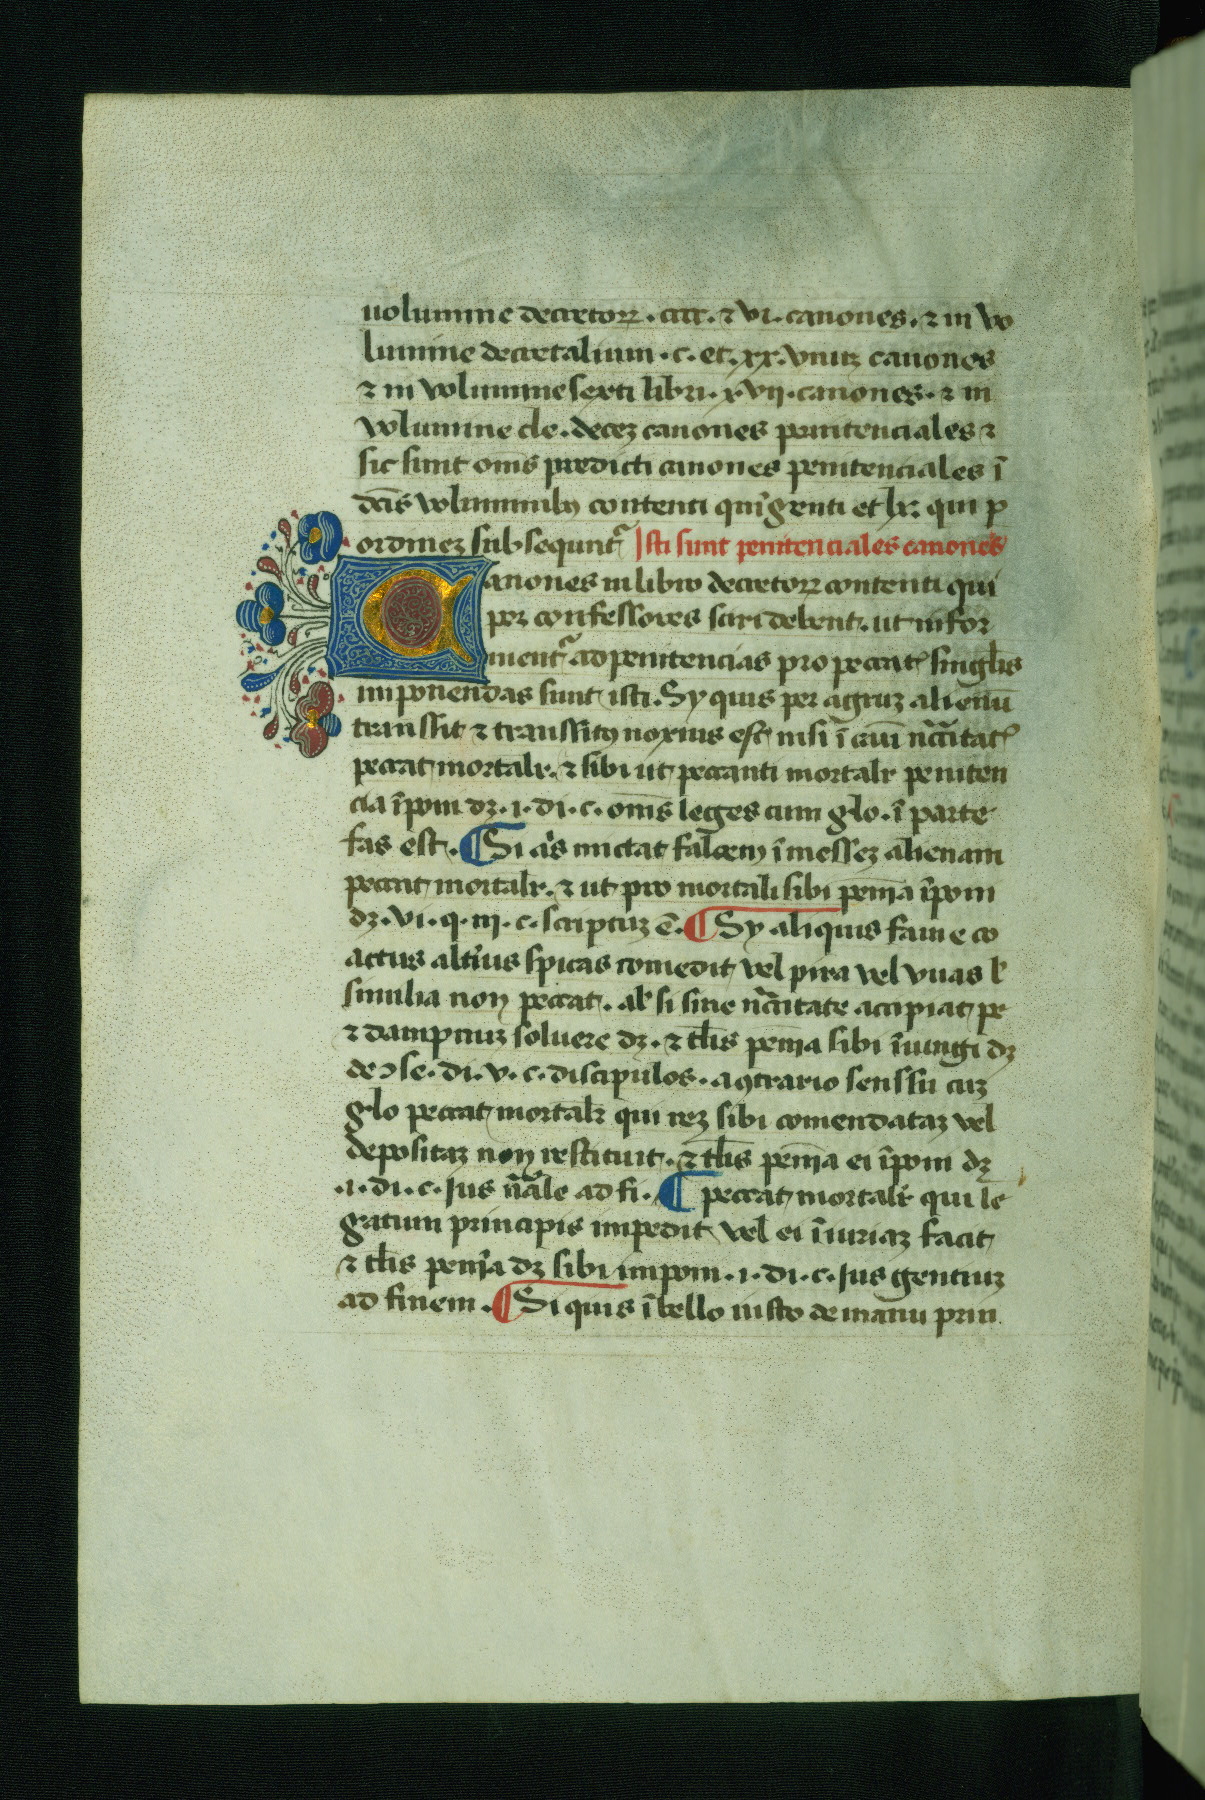 uolumine decretoꝝ . ccc . ⁊ vi . canones . ⁊ in vo
lumine decretalium . c . et . xx . vnuꝫ canones
⁊ in volumine sexti libri . xvii . canones . ⁊ in
volumine cle . deceꝫ canones penitenciales ⁊
sic sunt om̄s predicti canones penitenciales ī
dcīs voluminibꝫ contenti quīgenti et lx: qui p
ordineꝫ subsequntᷓ Isti sunt penitenciales canones
Canones in libro decretoꝝ contenti qui
peꝫ confessores sciri debent . ut infor
mentᷓ ad penitencias pro peccatꝭ singl̄is
imponendas sunt isti . Sy quis per agruꝫ alienū
transsit ⁊ transsitꝰ noxius est nisi ī cuī nc̄citatꝭ
peccat mortalr . ⁊ sibi ut peccanti mortalr peniten
cia īponi dꝫ . i . di . c . om̄s leges cum glo . ī parte
fas est . ¶ Si qͥs mictat falcem ī messeꝫ alienam
peccat mortalr . ⁊ ut pro mortali sibi pen̄ia īponi
dꝫ . vi . q . iii . c . scriptuꝫ ē . ¶ Sy aliquis fame co
actus alt̄ius spicas comedit vel pira vel vuas lꝭ
similia non peccat . alꝭ si sine nc̄citate accipiat pe
⁊ dampnuꝫ soluere dꝫ . ⁊ tl̄is pen̄ia sibi īiungi dꝫ
de ↄse . di . v . c . discipulos . a ↄtrario senssu cuꝫ
glo peccat mortalr qui reꝫ sibi comendataꝫ vel
depositaꝫ non restituit . ⁊ tl̄is pen̄ia ei īponi dꝫ
. i . di . c . Ius n̄ale ad fi . ¶ peccat mortalr qui le
gatum principis impedit vel ei īiuriaꝫ facit
⁊ tl̄is pen̄ia dꝫ sibi imponi . i . di . c . Ius gentiuꝫ
ad finem . ¶ Si quis ī bello iusto de manu prin